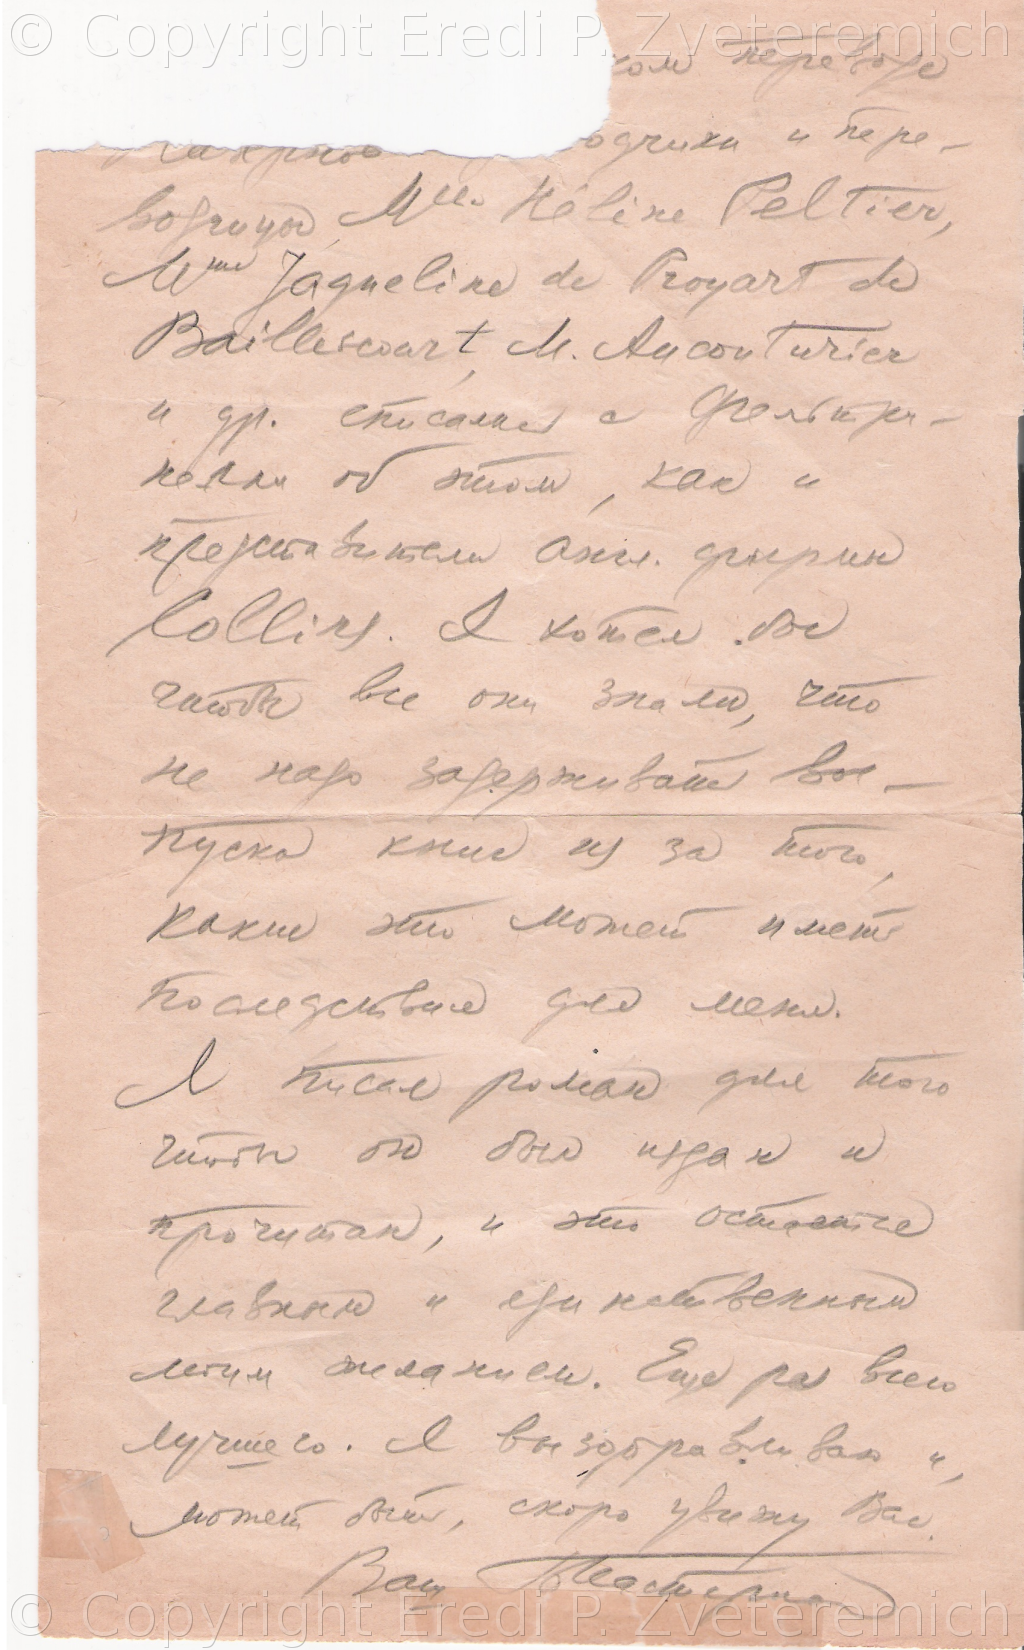 © Copyright Eredi P. Zveteremich
ком переводе
одчики и пере-
водчицы, Mlle. Hélène Peltier,
Mme Jaqueline de Proyart de
Baillescourt, M. Aucouturier
и др. списались с Фельтри-
нелли об этом, как и
представители англ. фирмы
Collins. Я хотел бы
чтобы все они знали, что
не надо задерживать вы-
пуска книг из за того,
какие это может иметь
последствия для меня.
Я писал роман для того
чтобы он был издан и
прочитан, и это остается
главным и единственным
моим желанием. Еще раз всего
лучшего. Я выздоравливаю и,
может быть, скоро увижу Вас.
Ваш БПастернак
© Copyright Eredi P. Zveteremich